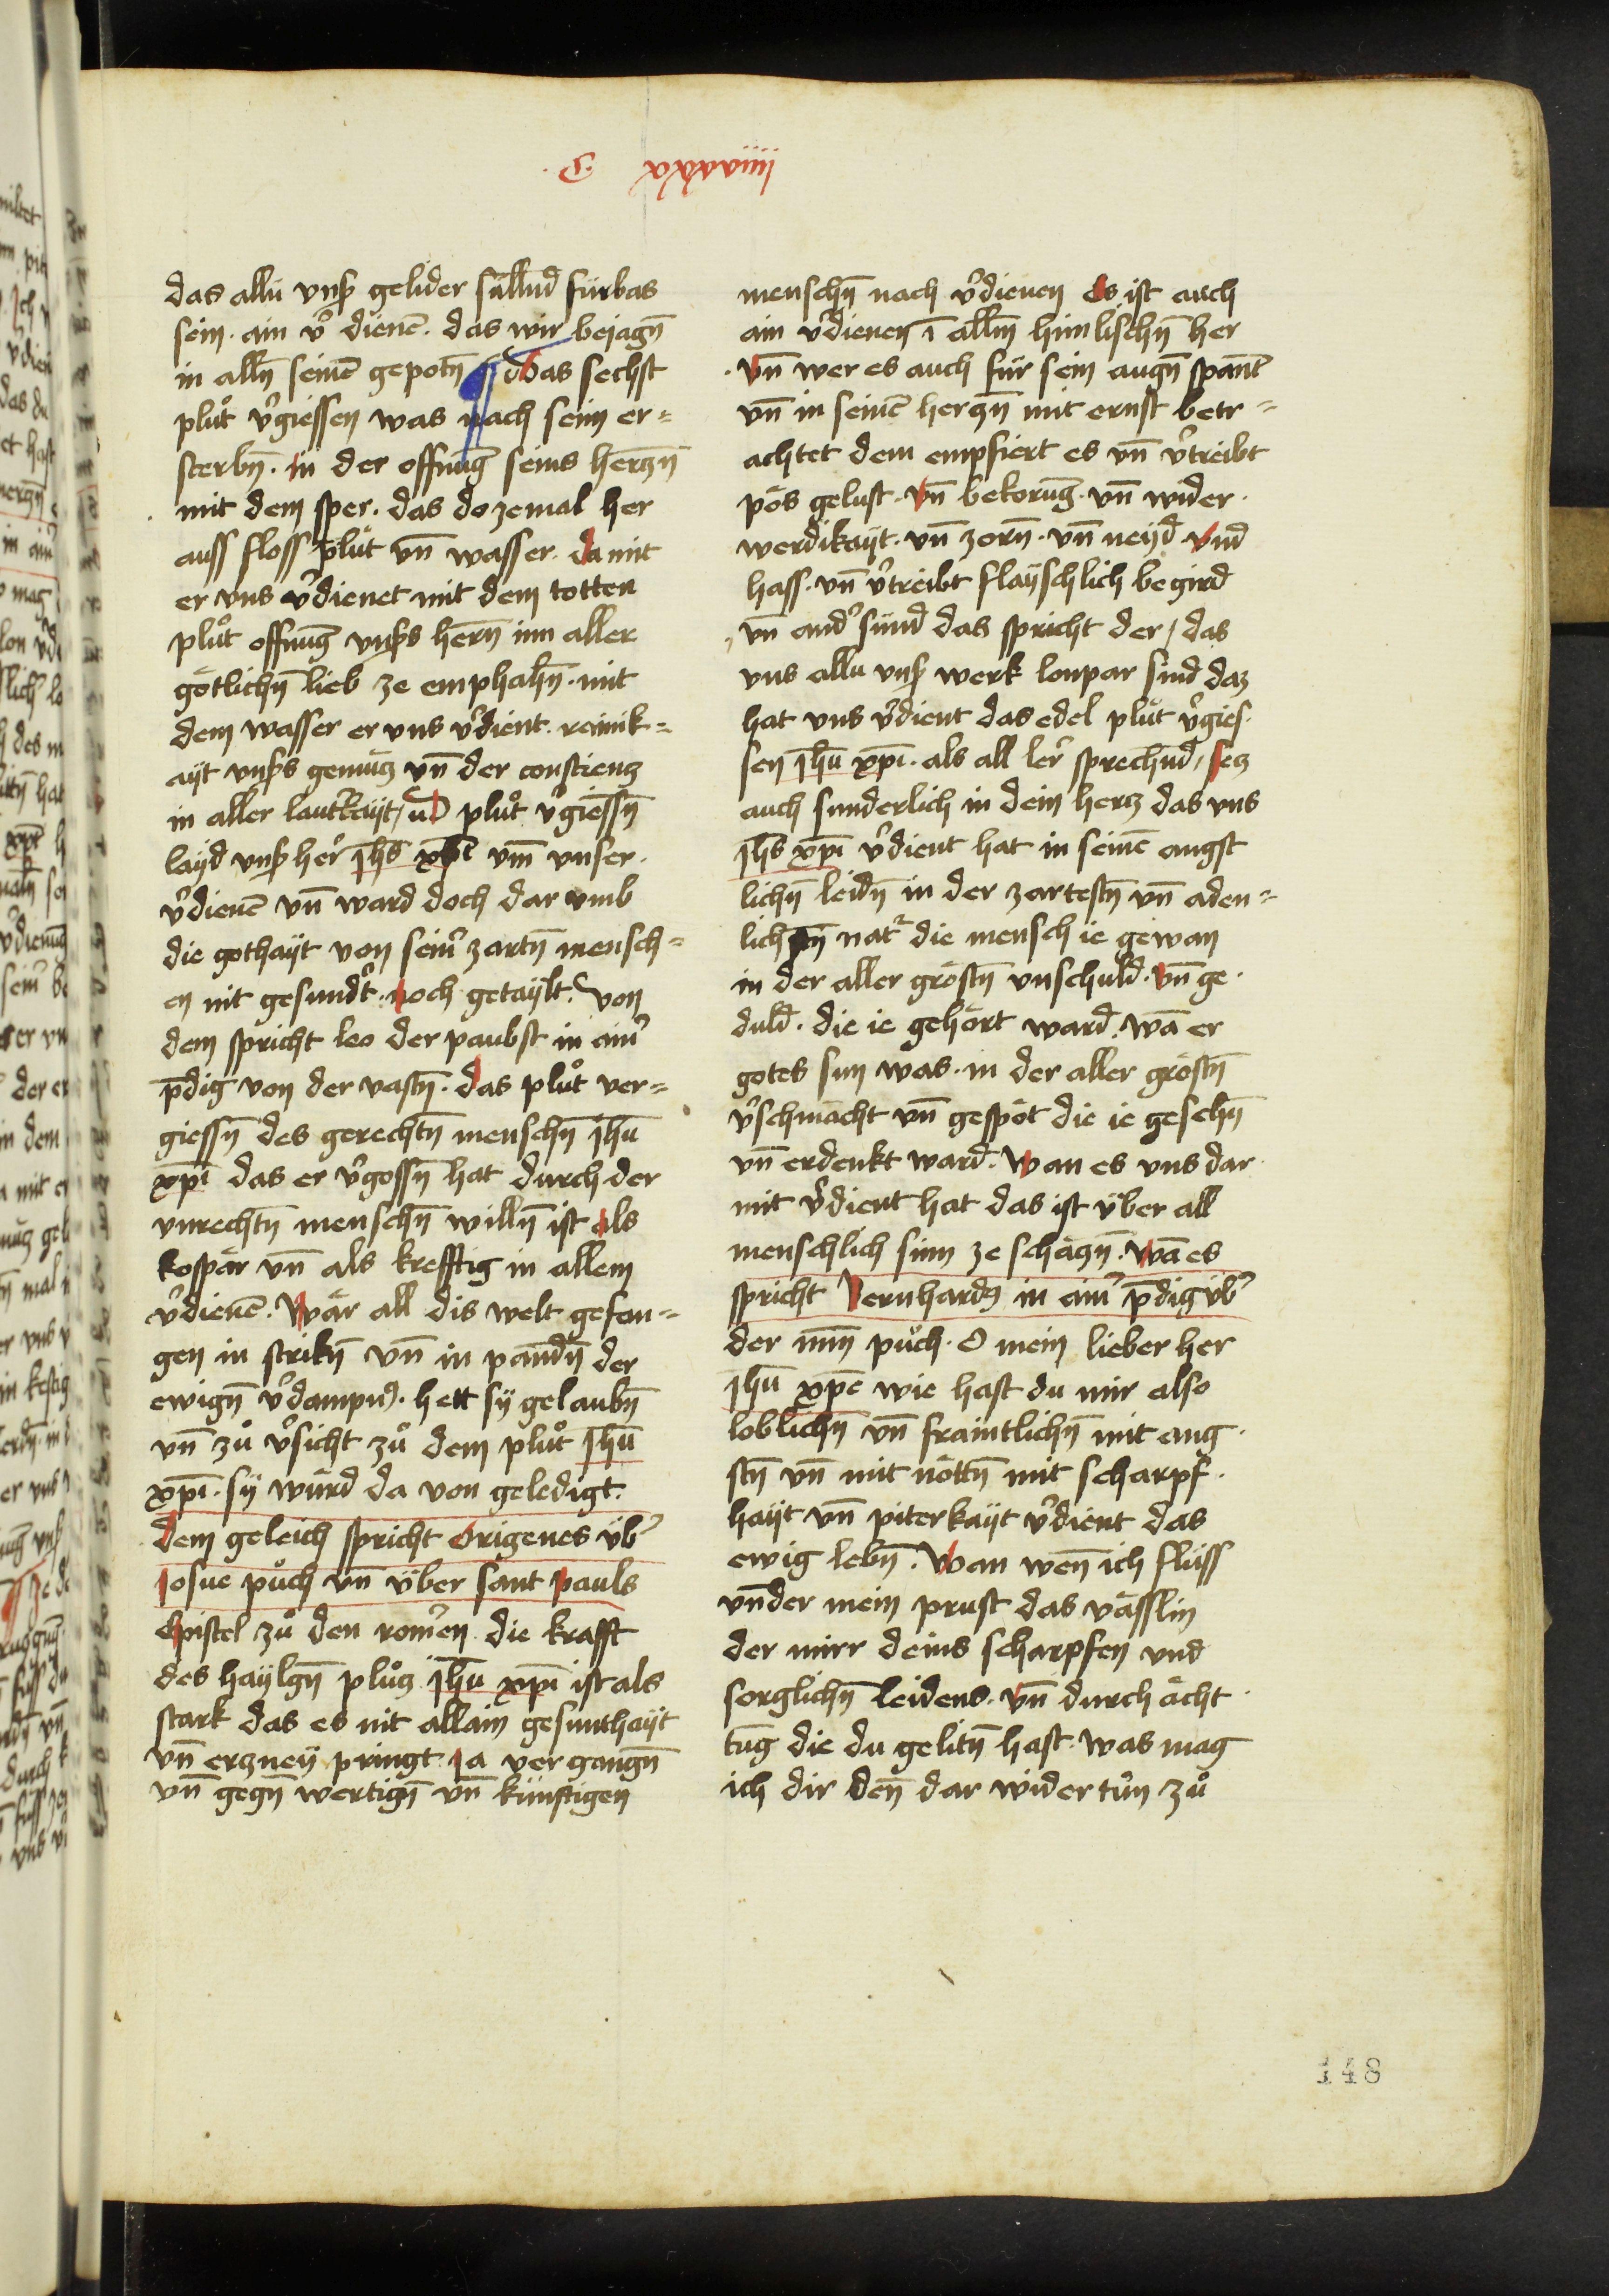 das allü vnß gelider süllnd fürbas
sein · ain v̉ dienē · das wir bejagn̄
in alln̄ seinē gepotn̄ Das sechst
pluͦt v̉giessen was nach seim er=
sterbn̄ · in der offnūg seins herczn̄
mit dem sper · das do zemal her
auss floss pluͦt vn̄ wasser · da mit
er vns v̉dienet mit dem totten
pluͦt offnūg vnßs hern̄ inn aller
götlichn̄ lieb ze emphahn̄ · mit
dem wasser er vns v̉dient · reinik=
ayt vnßs gemüͤcz vn̄ der consciencz
in aller lautkayt / pluͦt v̉giessn̄
layd vnß her̉ jhs xpī vm̄ vnser ·
v̉dienē vn̄ ward doch dar vmb
die gothayt von seim̉ zartn̄ mensch=
en nit gesundt̉ · noch getaylt · Von
dem spricht leo der paubst in aim̉
p̄dig von der vastn̄ · das pluͦt ver=
giessn̄ des gerechtn̄ menschn̄ jhū
xpī das er v̉gossn̄ hat durch der
vnrechtn̄ menschn̄ willn̄ ist als
kospär vn̄ als krefftig in allem
v̉dienē · Wär all dis welt gefan=
gen in strikn̄ vn̄ in pandn̄ der
ewign̄ v̉dampn̄ · hett sy gelaubn̄
vn̄ zuͦ v̉sicht zuͦ dem pluͦt jhū
xpī · sy würd da von geledigt ·
dem geleich spricht Origenes üb̉
josue puͦch vn̄ über sant pauls
Epistel zuͦ den rom̉en die krafft
des haylgn̄ pluͦcz jhū xpī ist als
stark das es nit allain gesunthayt
vn̄ erczney pringt ja vergangn̄
vn̄ gegn̄ wertign̄ vn̄ künftigen
menschn̄ nach v̉dienen Es ist auch
ain v̉dienen ī allm̄ himlischn̄ her
Vn̄ wer es auch für sein augn̄ spānt
vn̄ in seinē herczn̄ mit ernst betr=
achtet dem empfiert es vn̄ v̉treibt
pös gelust · Vn̄ bekorūg · vn̄ wider ·
werdikayt · vn̄ zorn̄ · vn̄ neyd · Vnd
hass · vn̄ v̉treibt flayschlich begird
vn̄ and̉ sünd das spricht der / das
vns allu vnß werk lonpar sind daz
hat vns v̉dient das edel pluͦt v̉gies ·
sen jhū xpī · als all ler̉ sprechnd / secz
auch sunderlich in dein hercz das vns
jhs xpī v̉dient hat in seinē angst
lichn̄ leidn̄ in der zartestn̄ vn̄ aden=
lichn̄ nat̉ die mensch ie gewan
in der aller gröstn̄ vnschuld · Vn̄ ge ·
duld · die ie gehört ward · wā er
gotes sun was · in der aller gröstn̄
v̉schmächt vn̄ gespöt die ie gesehn̄
vn̄ erdenkt ward · Wan es vns dar
mit v̉dient hat das ist über all
menschlich sinn ze schäczn̄ · wā es
spricht Bernhardꝰ in aim̉ p̄dig üb̉
der puͦch · O mein lieber her
jhū xpē wie hast du mir also
loblichn̄ vn̄ fraintlichn̄ mit ang ·
stn̄ vn̄ mit nöttn̄ mit scharpf ·
hayt vn̄ piterkayt v̉dient das
ewig lebn̄ · Wan wen̄ ich flüss
vnder mein prust das väsßlin
der mirr deins scharpfen vnd
sorglichn̄ leidens · vn̄ durch ächt ·
tūg die du gelitn̄ hast · was mag
ich dir den̄ dar wider tuͦn zuͦ
148